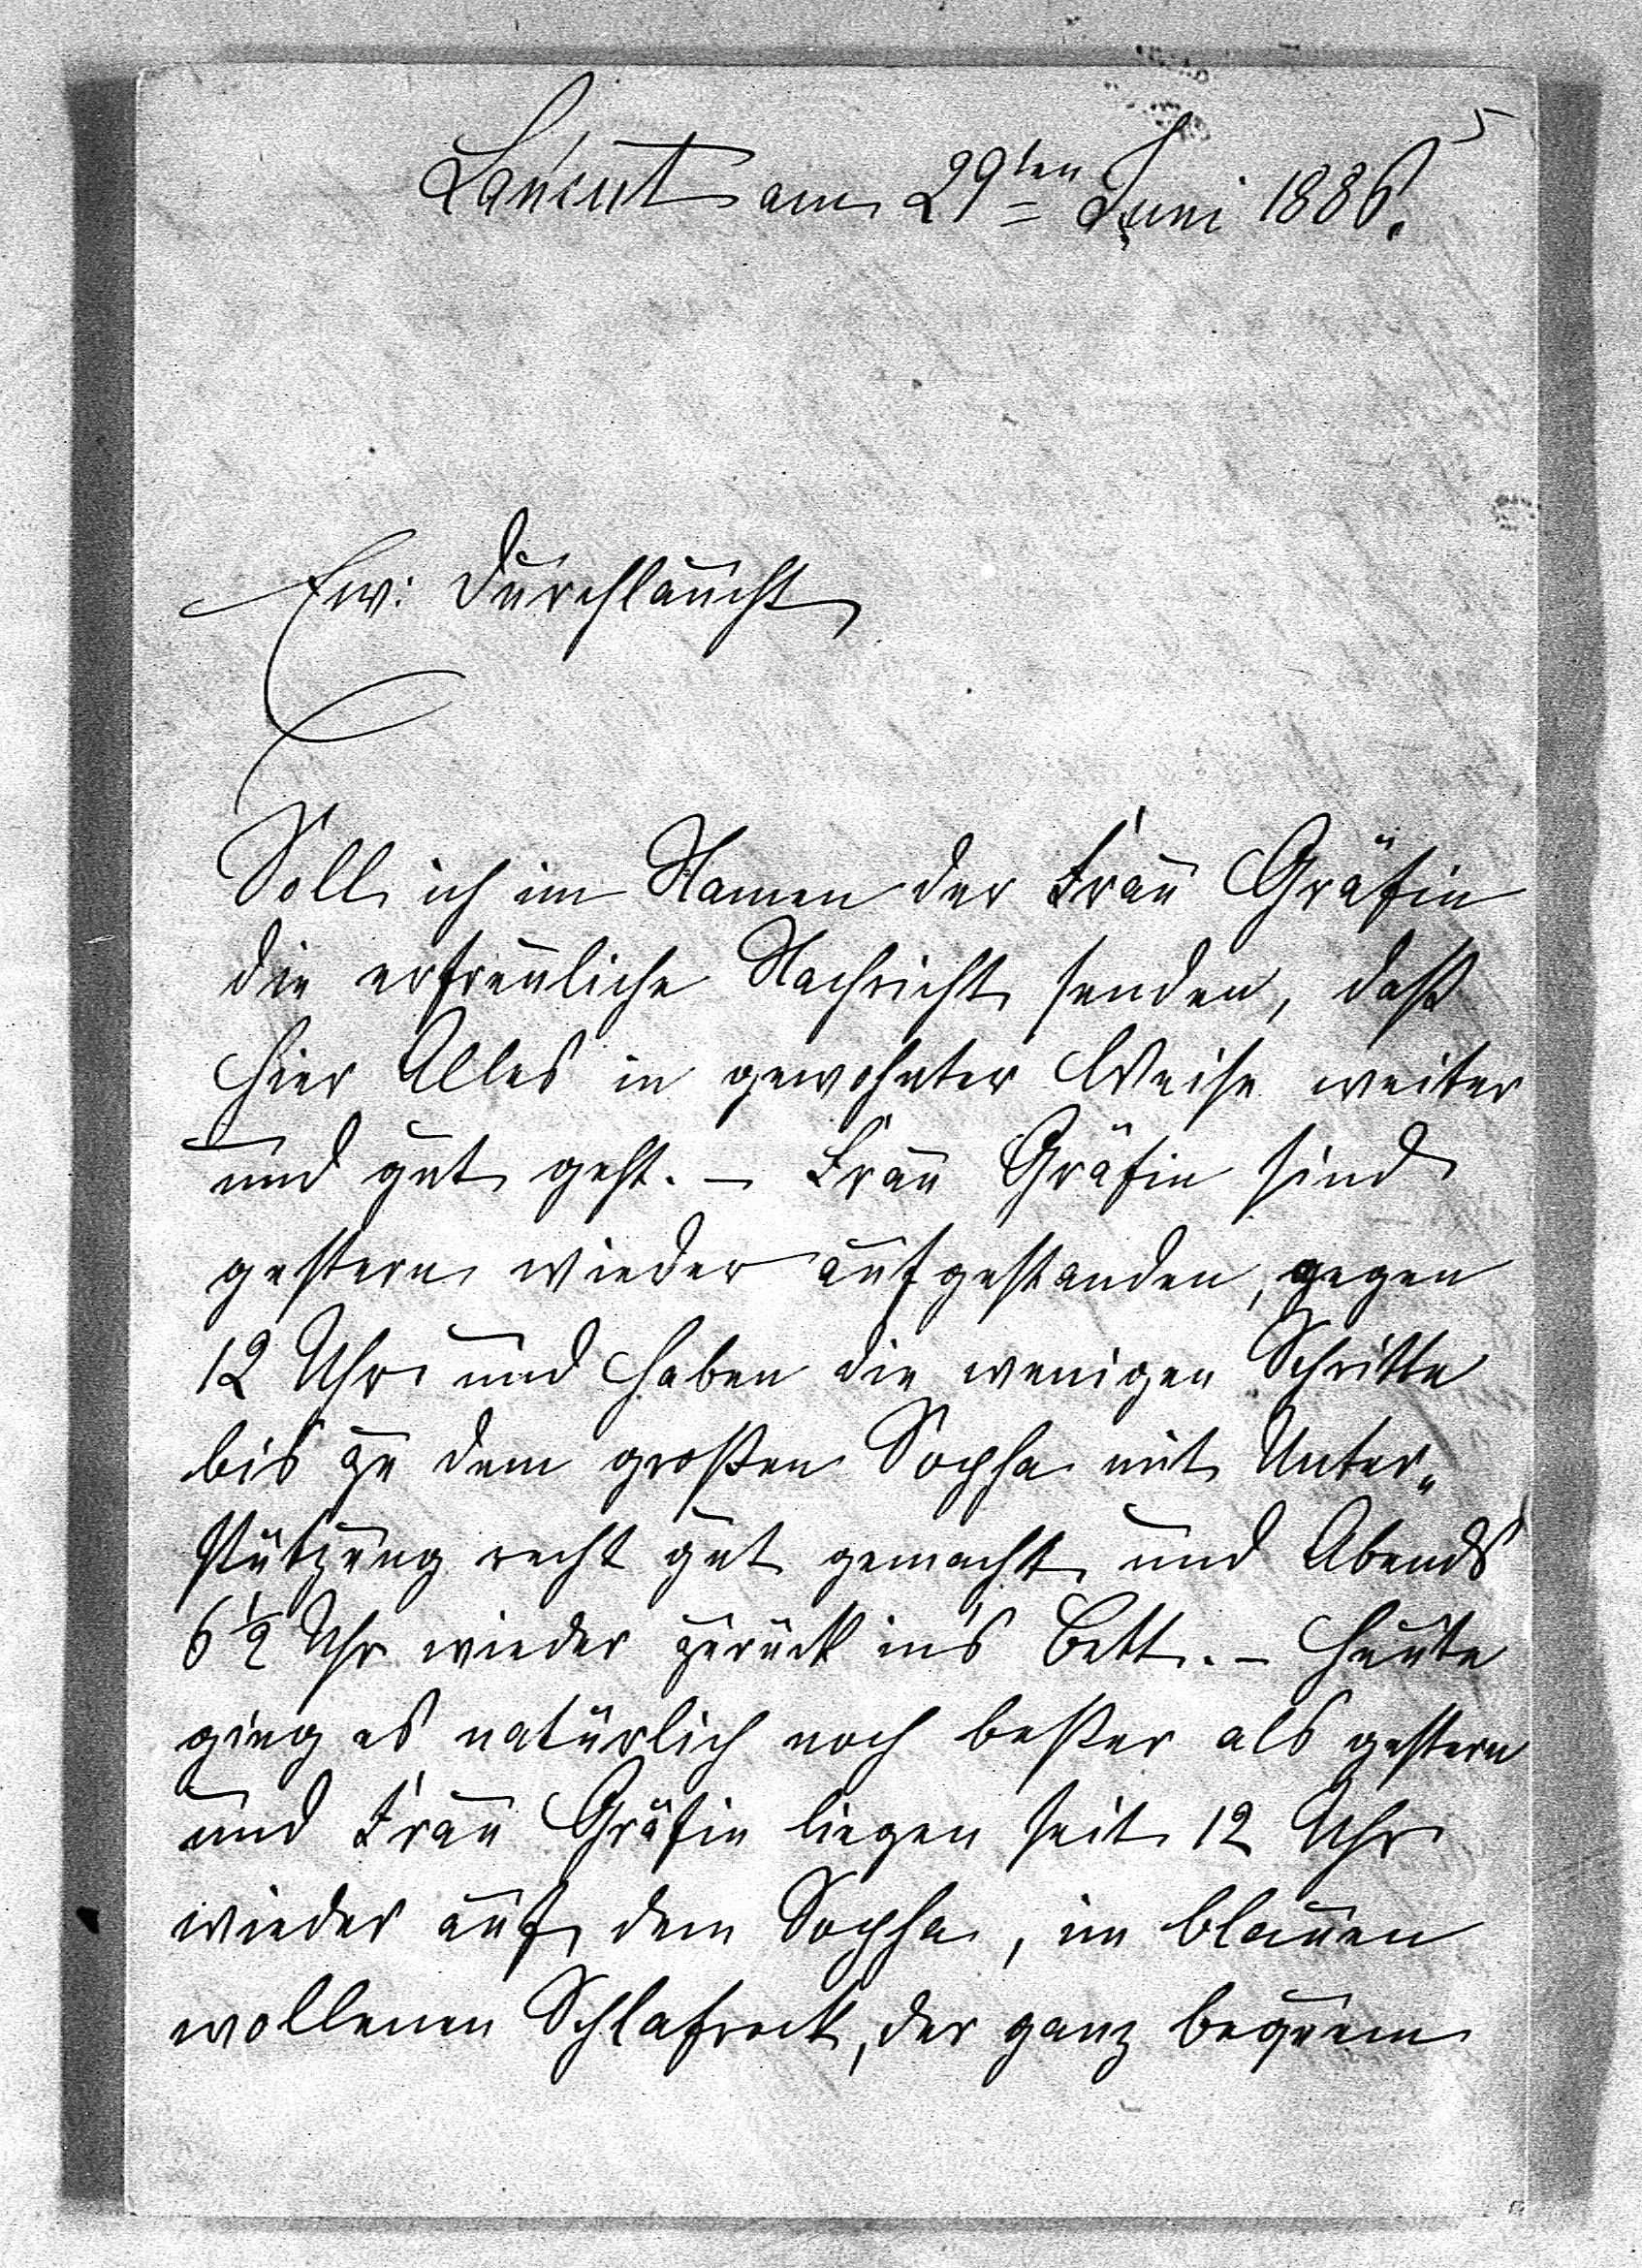 Łańcut am 29ten Juni 1886.
Ew: Durchlaucht
Soll ich im Namen der Frau Gräfin
die erfreuliche Nachricht senden, daß
hier Alles in gewohnter Weise weiter
und gut geht. – Frau Gräfin sind
gestern wieder aufgestanden, gegen
12 Uhr und haben die wenigen Schritte
bis zu dem großen Sopha mit Unter„
stützung recht gut gemacht und Abends
6 1/2 Uhr wieder zurück in's Bett. – Heute
ging es natürlich noch beßer als gestern
und Frau Gräfin liegen seit 12 Uhr
wieder auf dem Sopha, im blauen
wollenen Schlafrock, der ganz bequem